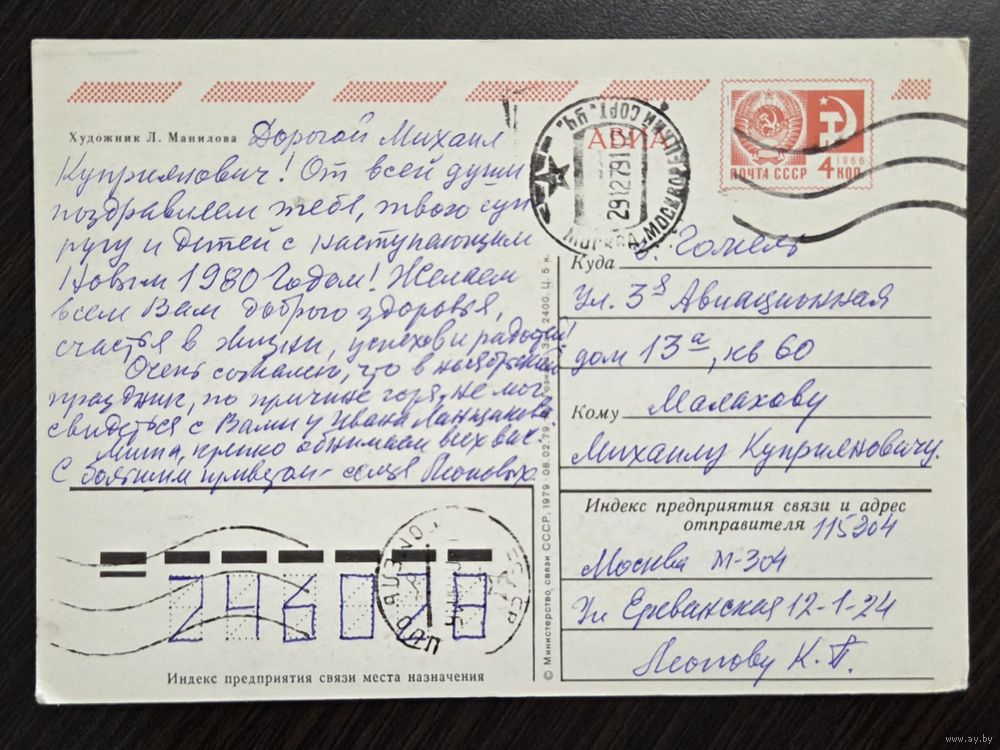 Художник Л. Манилова
Дорогой Михаил
Куприянович! От всей души
поздравляем тебя, твою суп
ругу и детей с наступающим
Новым 1980 Годом! Желаем
всем Вам доброго здоровья,
счастья в жизни, успехов и радостей!
Очень сожалею, что в ноябрьский
праздник, по причине горя, не мог
свидеться с Вами у Ивана
Миша, крепко обнимаем всех вас.
С большим приветом - семья Леоновых.
АВИА
МОСКВА
29127910
1966
ПОЧТА СССР 4 КОП
Куда г. Гомель
ул. 3я Авиационная
дом 13а, кв 60
Кому Малахову
Михаилу Куприяновичу.
Индекс предприятия связи и адрес
отправителя 115304
Москва М-304
ул Ереванская 12-1-24
Леонову К. П.
© Министерство связи СССР, 1979 08.02.79.
2400. Ц. 5 к.
246028
Индекс предприятия связи места назначения
www.ay.by